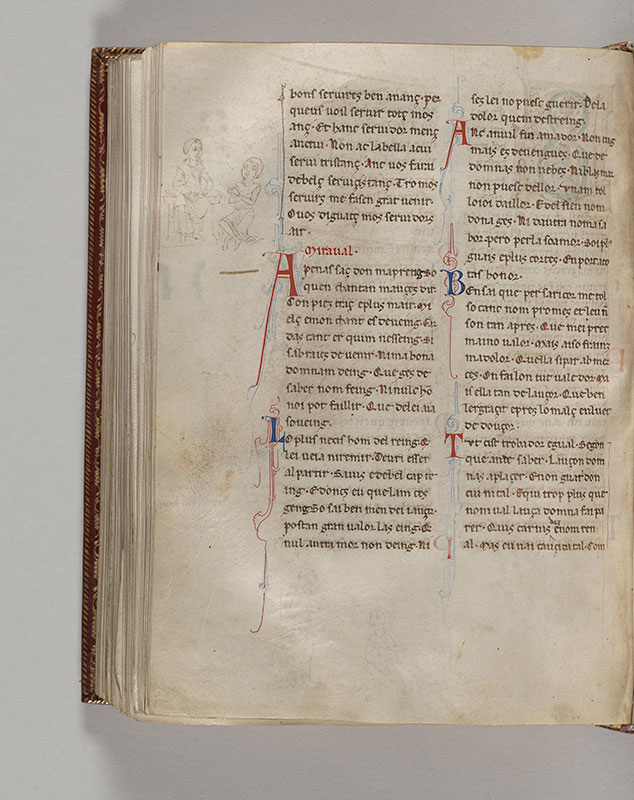 bons seruires ben auanç· per
queus uoil seruir totç inos
anç· Et hanc seruidor menç
auctui· Non ac labella acui
serui tristanç· Anc uos farai
debelç seruisis tanç· Tro mos
seruirs me fasen grat uenir·
O uos diguatç mos seruidors
air·
Miraual·
A penas saç don mapreng· So
quen chantan mauçes dir·
Con pieç traç eplus mair· Mi
elç emon chant es deueing· Gar
das cant er quim nesseing· Si
sabraies de uenir· Ni ma bona
domnam deing· Que ges de
saber nom feing· Ni nulç ho
noi pot faillir· Que de lei aia
soueing·
L o plus necis hom del reing· Qe
lei ueia niremir· Deuri esser
al partir· Sauis e debel cap te
ing· E donçs eu que lam ces
geng· So sai ben men dei iauçir·
Pos tan gran ualor las eing· Qe
nul autra mor non deing· Ni
ses lei no puesc guerir· Dela
dolor quem destreing·
A nc amil fin amador· Non cug
mais es deuengues· Que de
domnas non nebes· Ni blasmar
non puesc dellor· Vnam tol
loioi daillor· E del sieu nom
dona ges· Ni dautra no ma sa
bor· pero per la soamor· Soi pl
guais eplus cortes· En port ato
tas honor·
B en sai que per sa ricor me tol
so tanc nom promes et leuin
son tan apres· Que mei prec
mai no ualor· Mas aiso franz
ma dolor· Quella si par ab mer
ces· On fai lon tut ual dor· Ma
is ella tan de lauçor· Que ben
ler graçit e pres lo malç en luer
de douçor·
T vt cist trobador egual· Segon
que ante saber· Lauçon dom
nas a plaçer· E non guardon
cui ni cal· E qui trop plus que
nom ual lauça domna fai pa
rer· Quis car nis enom ren
al· Mas eu nai cauçita tal· Com